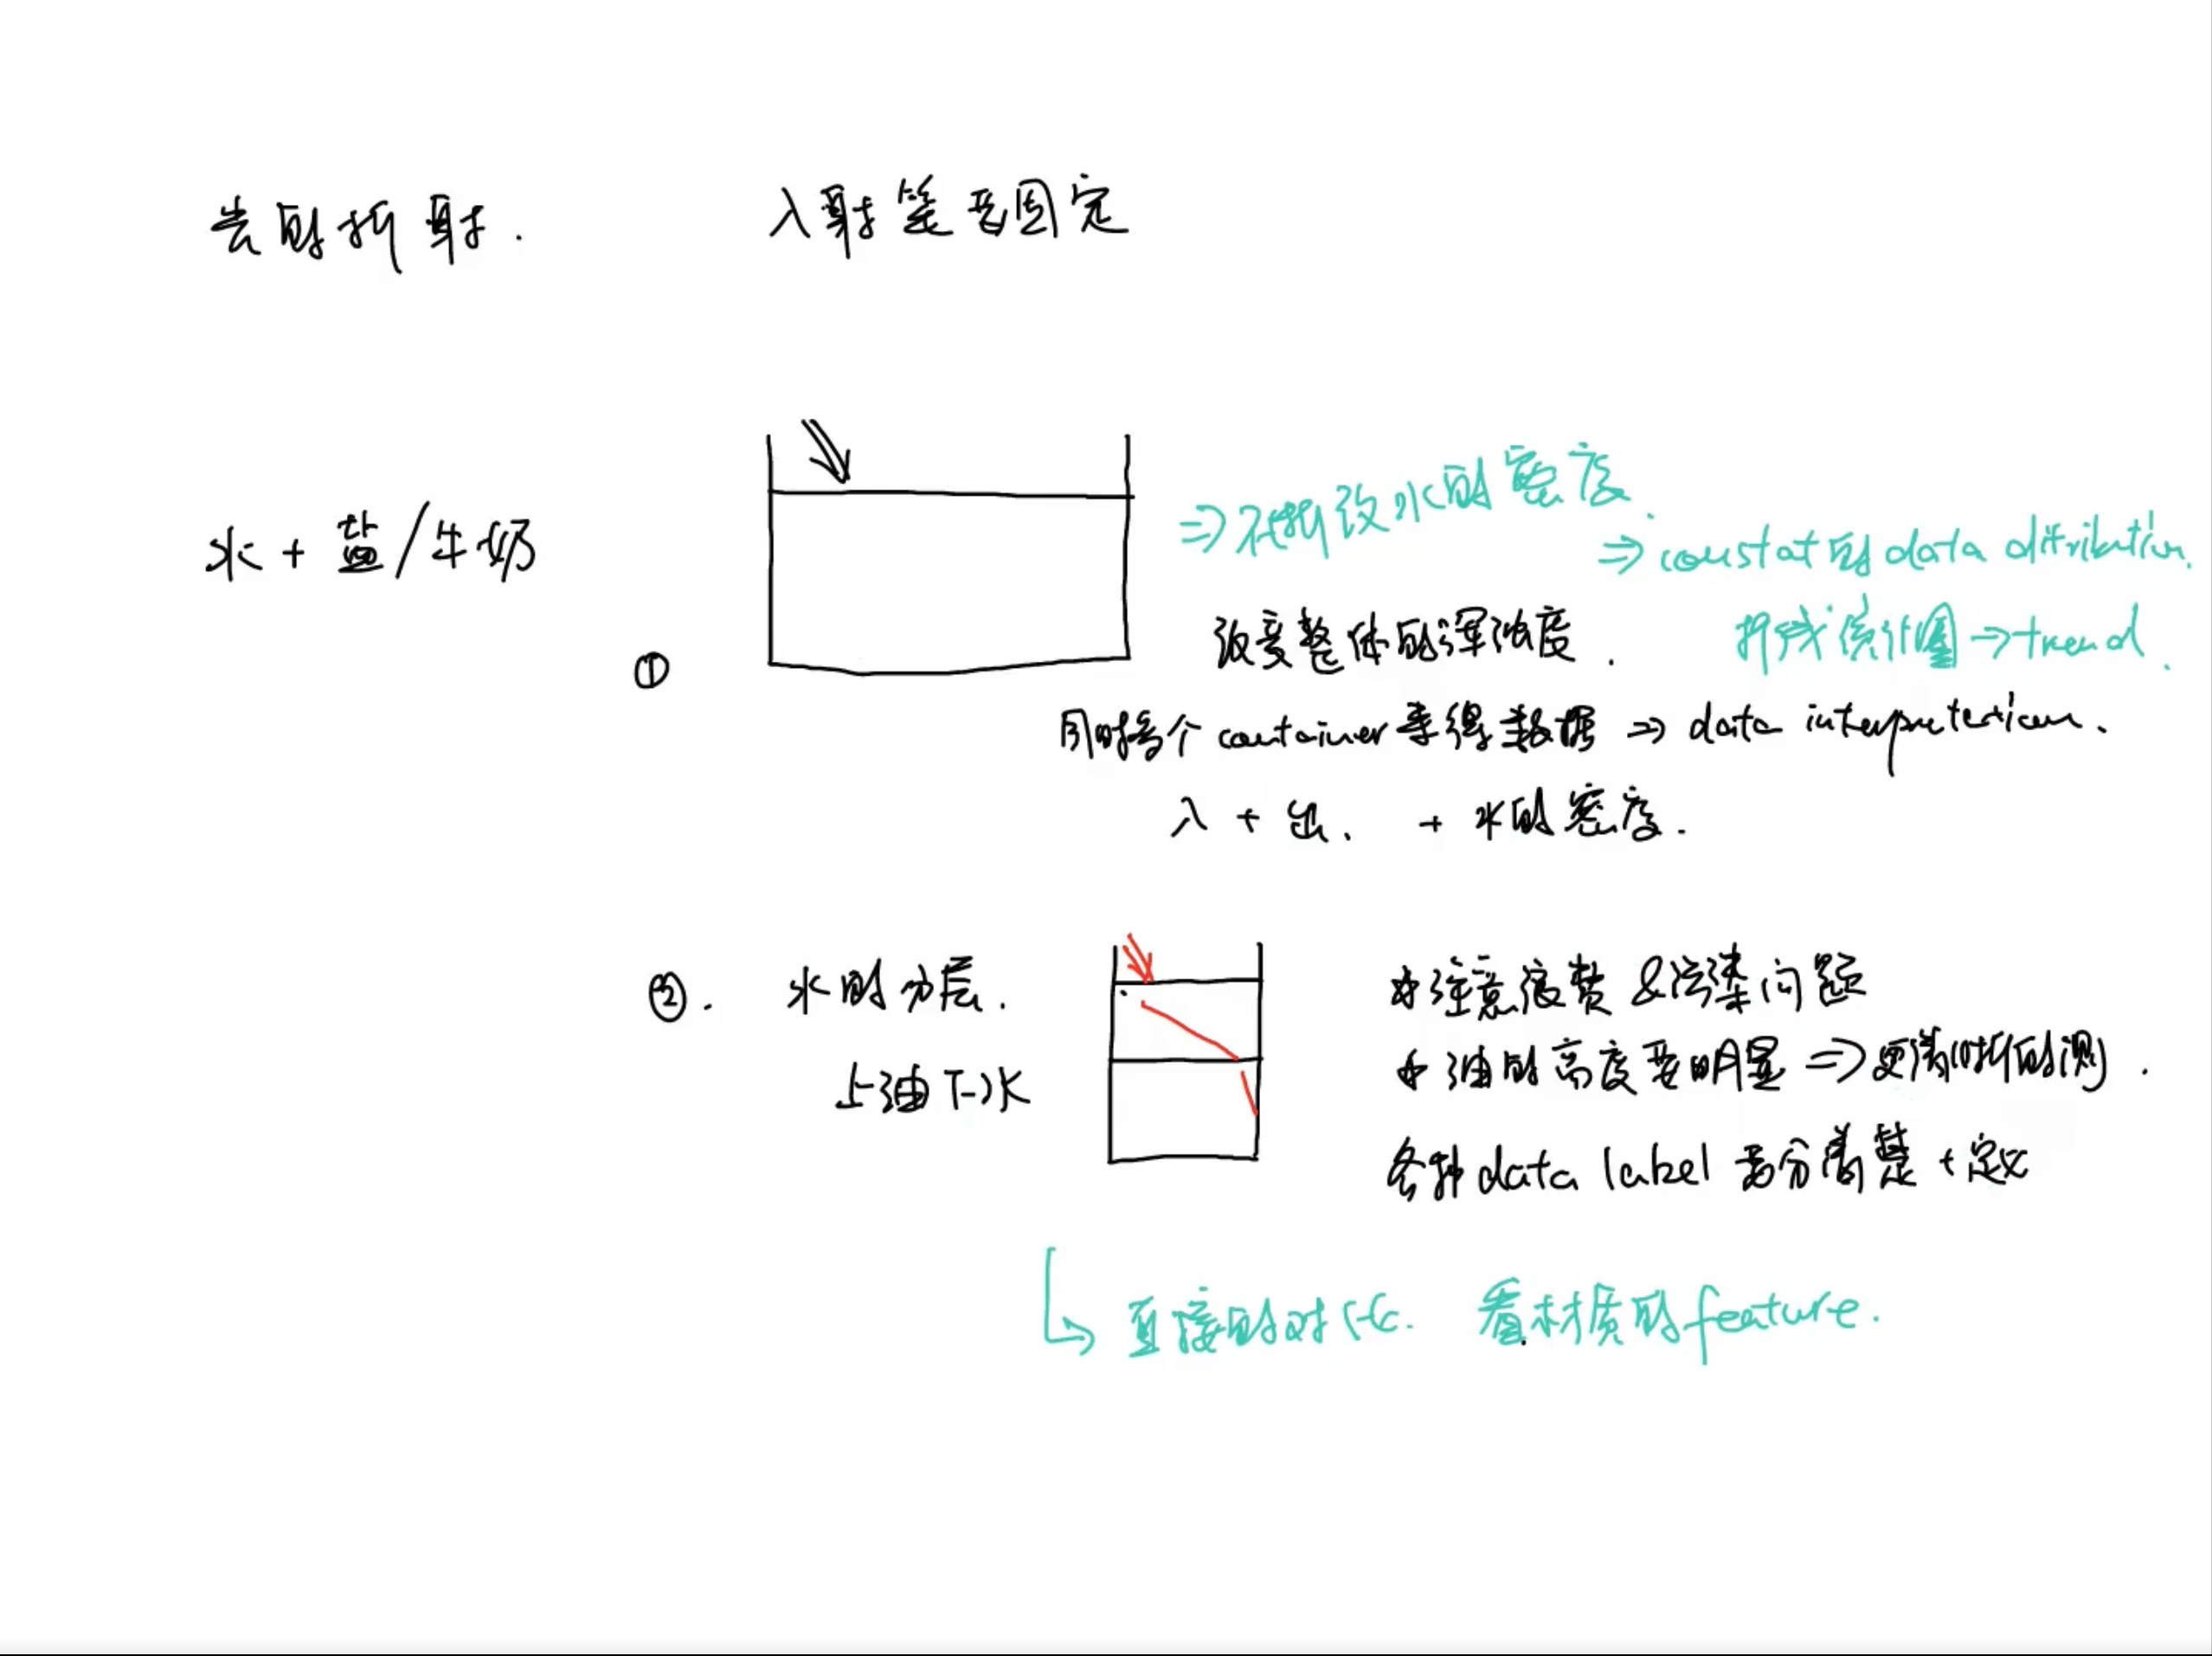 光的折射.
入射角要固定
水+盐/牛奶
⇒不断改水的密度.
⇒coustat的data ditribution.
①
改变整体的浑浊度.
⇒trend.
同时多个container来得数据⇒data interpretation.
入+出. +水的密度.
②. 水的分层.
上油下水
注意浪费&污染问题
油的高度要明显⇒更清晰的测.
各种data label要分清楚+定义
直接的对比. 看材质的feature.